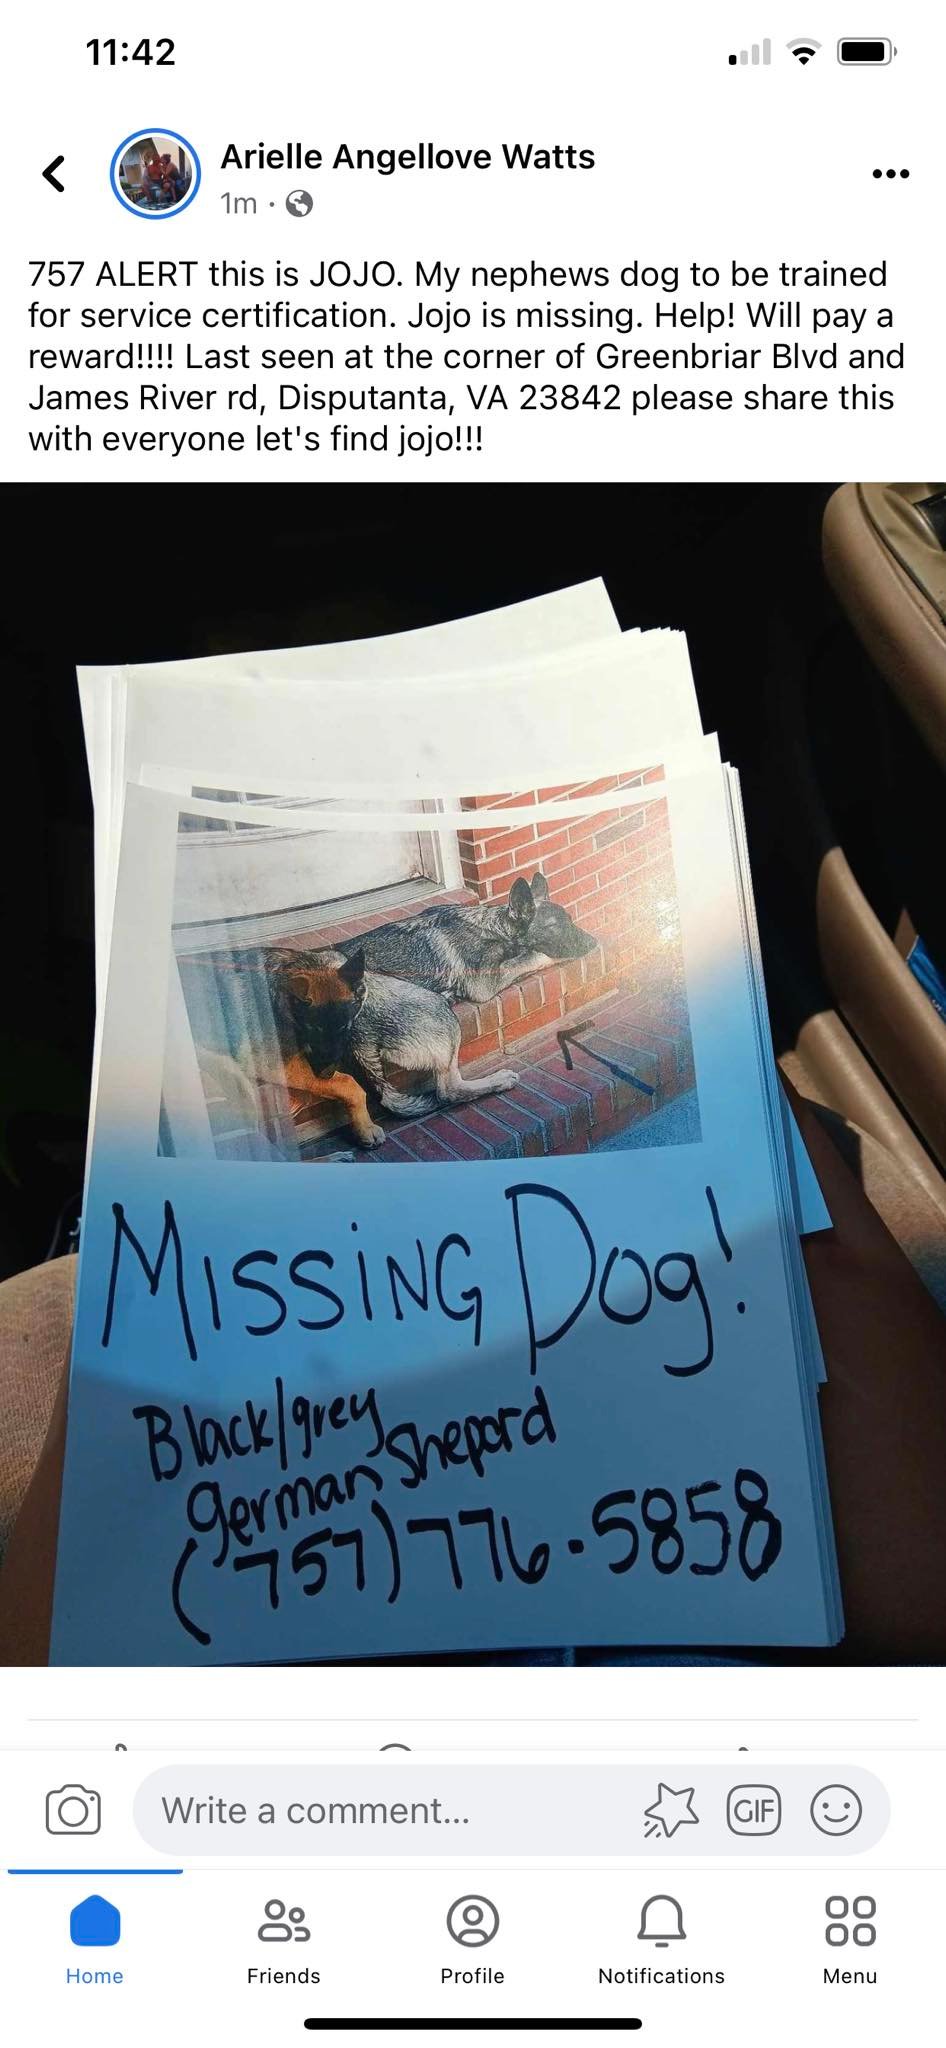 11:42
Arielle Angellove Watts
1m ·
757 ALERT this is JOJO. My nephews dog to be trained
for service certification. Jojo is missing. Help! Will pay a
reward!!!! Last seen at the corner of Greenbriar Blvd and
James River rd, Disputanta, VA 23842 please share this
with everyone let's find jojo!!!
MISSING DOg!
Black/grey
german Shepard
(757)776-5858
Write a comment...
GIF
Home
Friends
Profile
Notifications
Menu